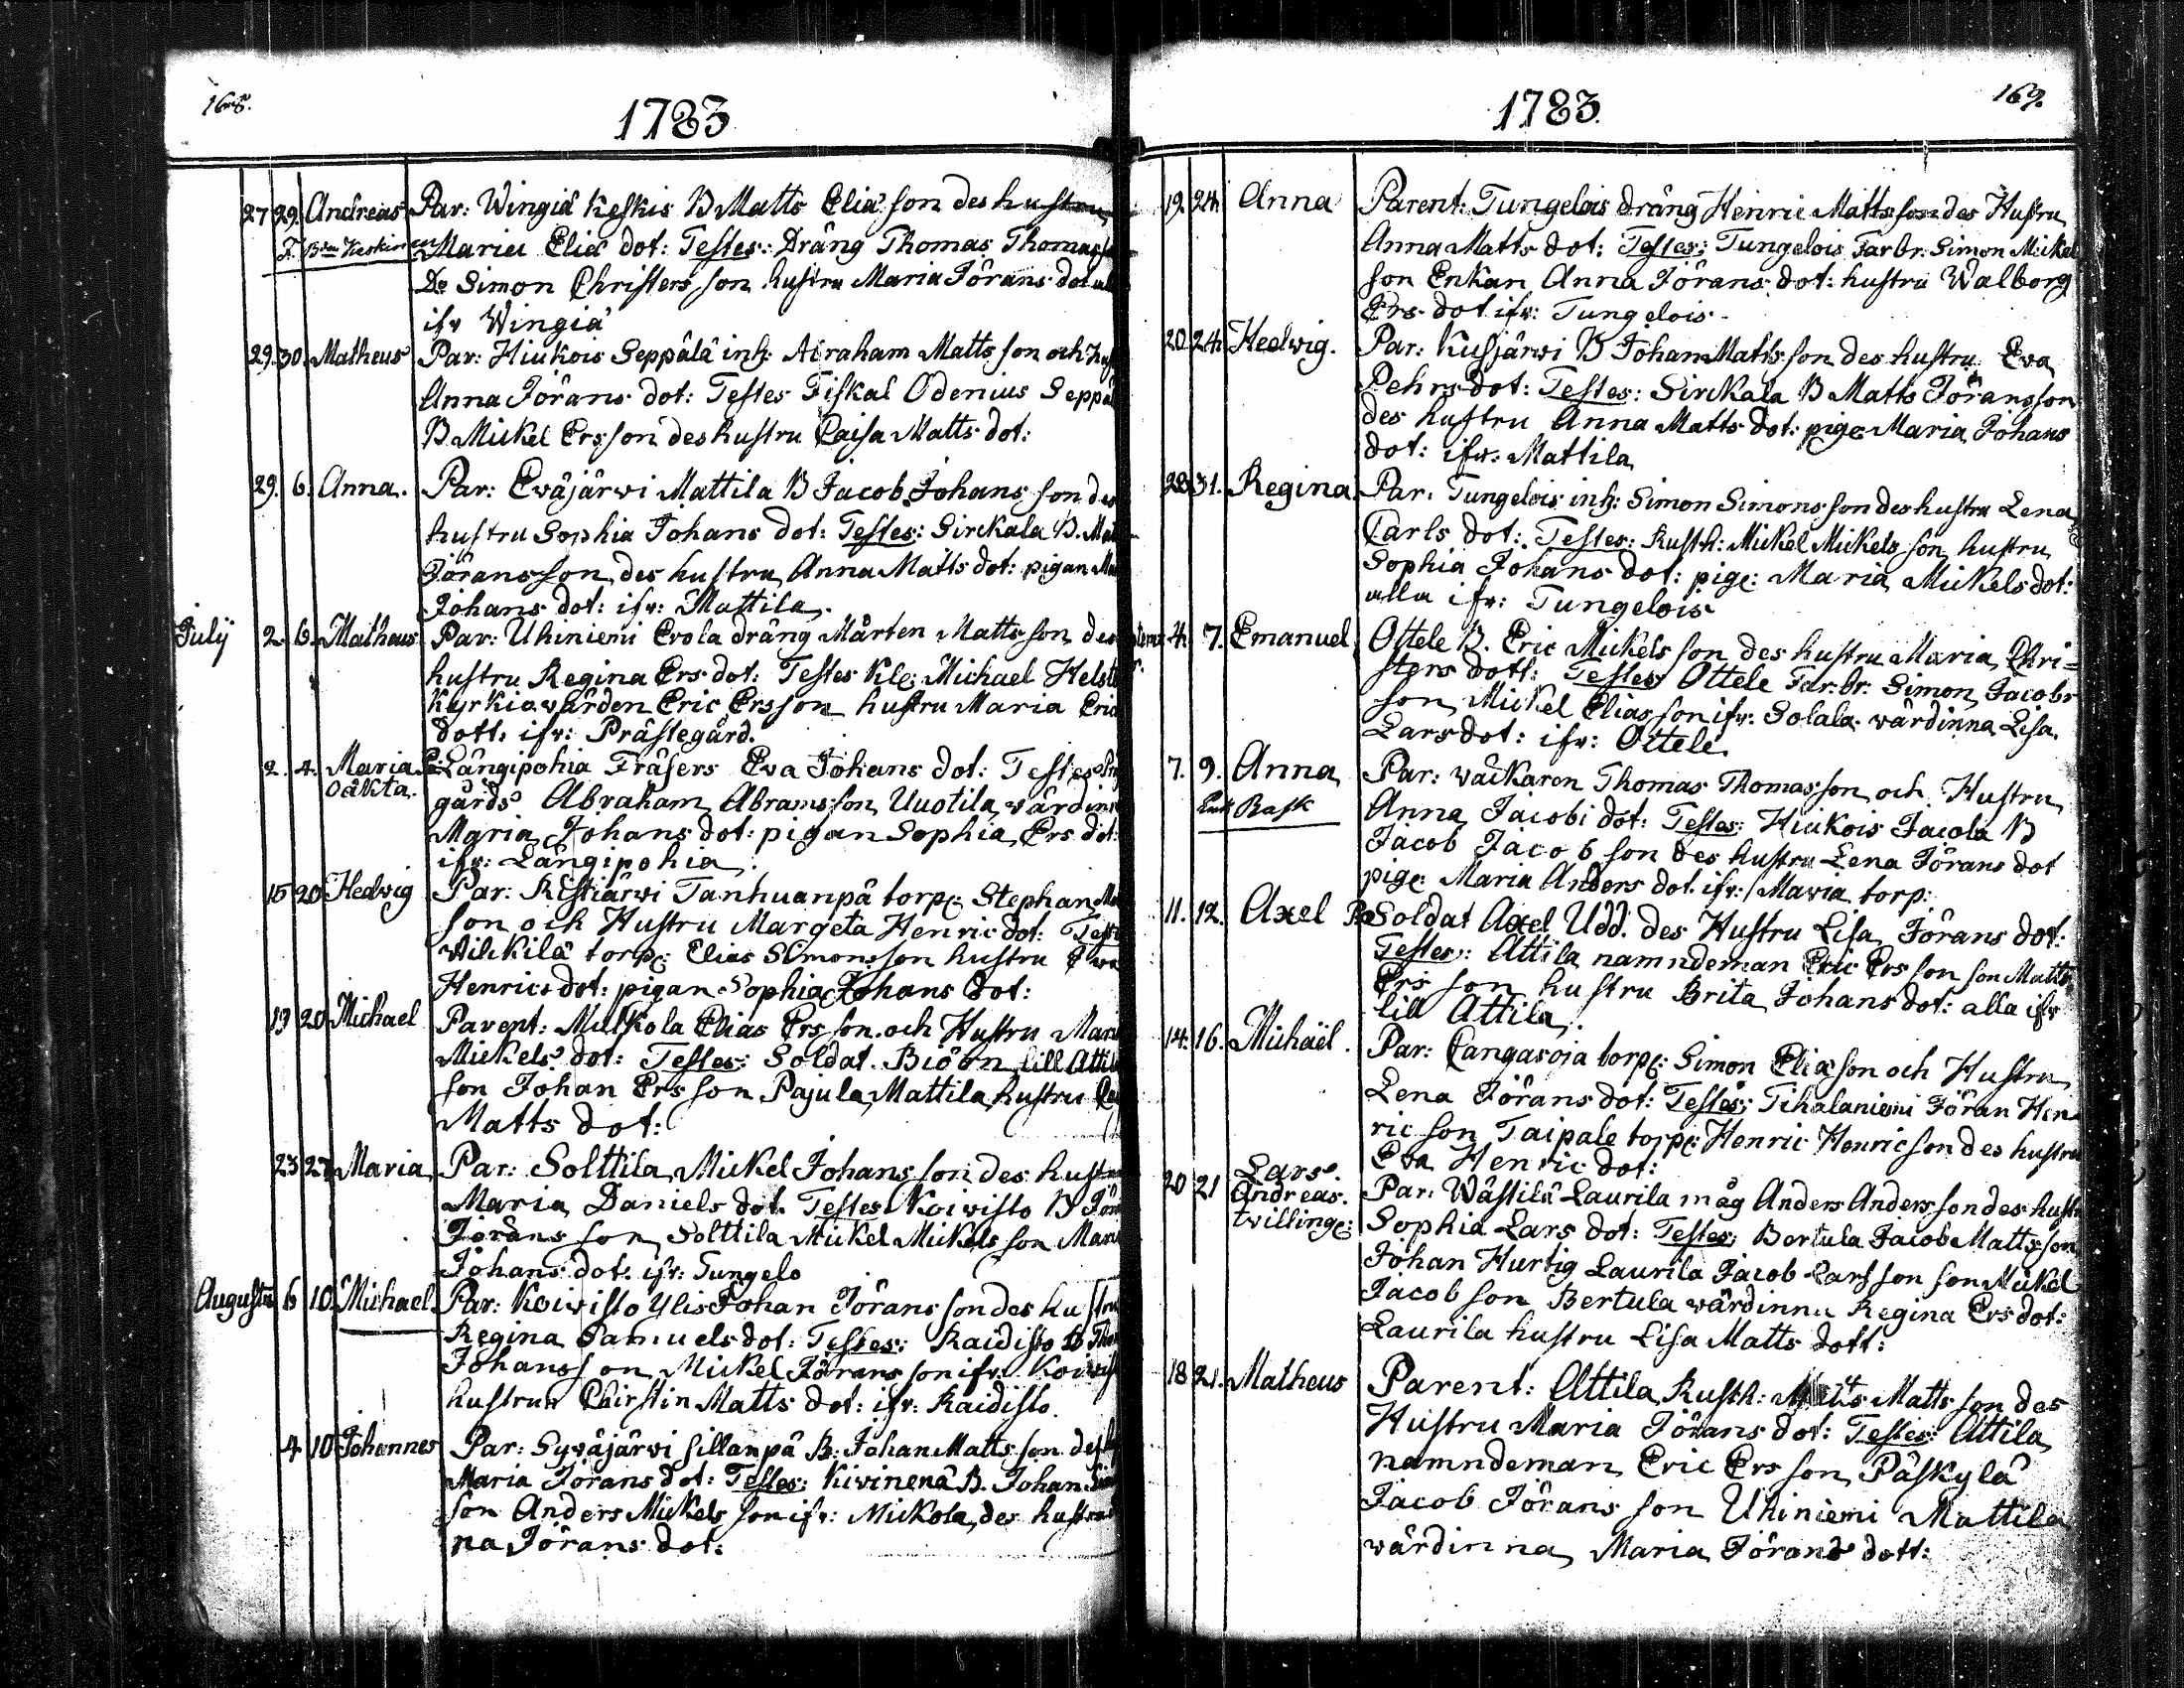 168.
1783
27 29. Andreas Par: Wingiä Keskis B Matts Eliæ son des hustru
F. Bem Keskinen Maria Eliæ dot: Testes: Dräng Thomas Thomas
Do Simon Christers son hustru Maria Jörans dot
ifr Wingiä
29. 30. Matheus Par: Hiukois Seppälä inh: Abraham Matts son och
Anna Jörans dot: Testes Fiskal Odenius Seppäl
B Mickel Ers son des hustru Caisa Matts dot:
29. 6. Anna. Par: Eväjärvi Mattila B Jacob Johans son des
hustru Sophia Johans dot: Testes: Sirckala B. Mat
Jörans son des hustru Anna Matts dot: pigan
Johans dot: ifr: Mattila.
July 2. 6. Matheus Par: Uhiniemi Erola dräng Mårten Matts son des
hustru Regina Ers dot: Testes Kl: Michael Helst
Kyrkiovärden Eric Ers son hustru Maria Eric
dott: ifr: Prästegård.
2. 4. Maria Längipohia Fräsers Eva Johans dot: Testes
oäkta. gårds Abraham Abrams son Uuotila värdinn
Maria Johans dot: pigan Sophia Ers dot:
ifr: Längipohia.
15 20 Hedvig Par: Ristiärwi Tanhuanpä torp: Stephan
son och Hustru Margeta Henrics dot: Teste
Wilckilä torp: Elias Simons son hustru Ewa
Henrics dot: pigan Sophia Johans dot:
19 20 Michael Parent: Mulkola Elias Ers son och Hustru Mari
Mickels dot: Testes: Soldat. Biörn lill Attila
son Johan Ers son Pajula Mattila hustru
Matts dot:
23 27 Maria Par: Solttila Mickel Johans son des hustru
Maria Daniels dot. Testes Koivisto B Jör
Jörans son Solttila Mickel Mickels son Mari
Johans dot: ifr: Tungelo
Augusti 6 10. Michael Par: Koivisto Ylis Johan Jörans son des hustru
Regina Samuels dot: Testes: Raidisto B
Johans son Mickel Jörans son ifr: Koivist
hustrun Chirstin Matts dot: ifr: Raidisto.
4 10 Johannes Par: Syväjärvi Sillanpä B: Johan Matts son des
Maria Jörans dot: Testes: Kivinenä B. Johan
son Anders Mickels son ifr: Mickola des hustru
na Jörans dot:
169.
1783.
19. 24 Anna Parent: Tungelois dräng Henric Matts son des Hustru
Anna Matts dot: Testes: Tungelois Far br. Simon Mickel
son Enkan Anna Jörans dot: hustru Walborg
Ers dot ifr: Tungelois.
20. 24 Hedvig. Par: Kusjärvi B Johan Matts son des hustru Eva
Pehrs dot: Testes: Sirckala B Matts Jörans son
des hustru Anna Matts dot: pige Maria Johans
dot: ifr: Mattila
28 31. Regina Par: Tungelois inh: Simon Simons son des hustru Lena
Carls dot: Testes: Rusth: Mickel Mickels son hustru
Sophia Johans dot: pige: Maria Mickels dot:
alla ifr: Tungelois
4. 7. Emanuel Ottele B. Eric Mickels son des hustru Maria Chri-
sters dott: Testes Ottele Far.br. Simon Jacobs
son Mickel Elias son ifr: Solala värdinna Lisa
Lars dot: ifr: Ottele
7. 9. Anna Par: vackaren Thomas Thomas son och Hustru
Bask Anna Jacobi dot: Testes: Hiukois Jacola B
Jacob Jacob son des hustru Lena Jörans dot
pige: Maria Anders dot ifr: Maria torp:
11. 12. Axel Par Soldat Axel Udd. des Hustru Lisa Jörans dot:
Testes: Attila namndeman Eric Ers son son Matts
Ers son hustru Brita Johans dot: alla ifr
lill Attila.
14. 16. Michaël. Par: Cangasoja torp: Simon Eliæ son och Hustru
Lena Jörans dot: Testes: Tihalaniemi Jöran Hen
ric son Taipale torp: Henric Henric son des hustru
Eva Henric dot:
20 21 Lars. Andreas. twillinge: Par: Wästilä Laurila måg Anders Anders son des hustr
Sophia Lars dot: Testes: Bertula Jacob Matts son
Johan Hurtig Laurila Jacob Lars son son Mickel
Jacob son Bertula wärdinna Regina Ers dot:
Laurila hustru Lisa Matts dott:
18 21. Matheus Parent: Attila Rusth: Matts Matts son des
Hustru Maria Jörans dot: Testes: Attila
namndeman Eric Ers son Päskylä
Jacob Jörans son Uhiniemi Mattila
wärdinna Maria Jörans dott: